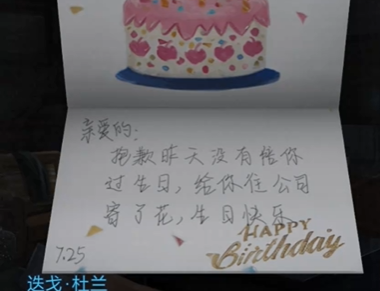 亲爱的:
抱歉昨天没有陪你
过生日,给你往公司
寄了花,生日快乐
HAPPY
Birthday
7.25
迭戈·杜兰